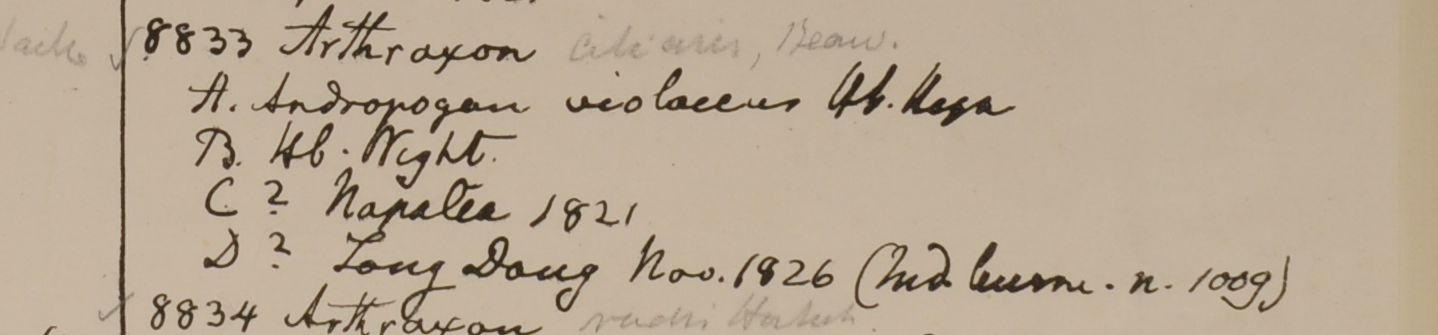 8833 Arthraxon ciliaris, Beauv.
A. Andropogon violaceus Hb. Heyn
B. Hb. Wight.
C ? Napalea 1821
D ? Tong Dong Nov. 1826 (Ind. burm. n. 1009)
8834 Arthraxon